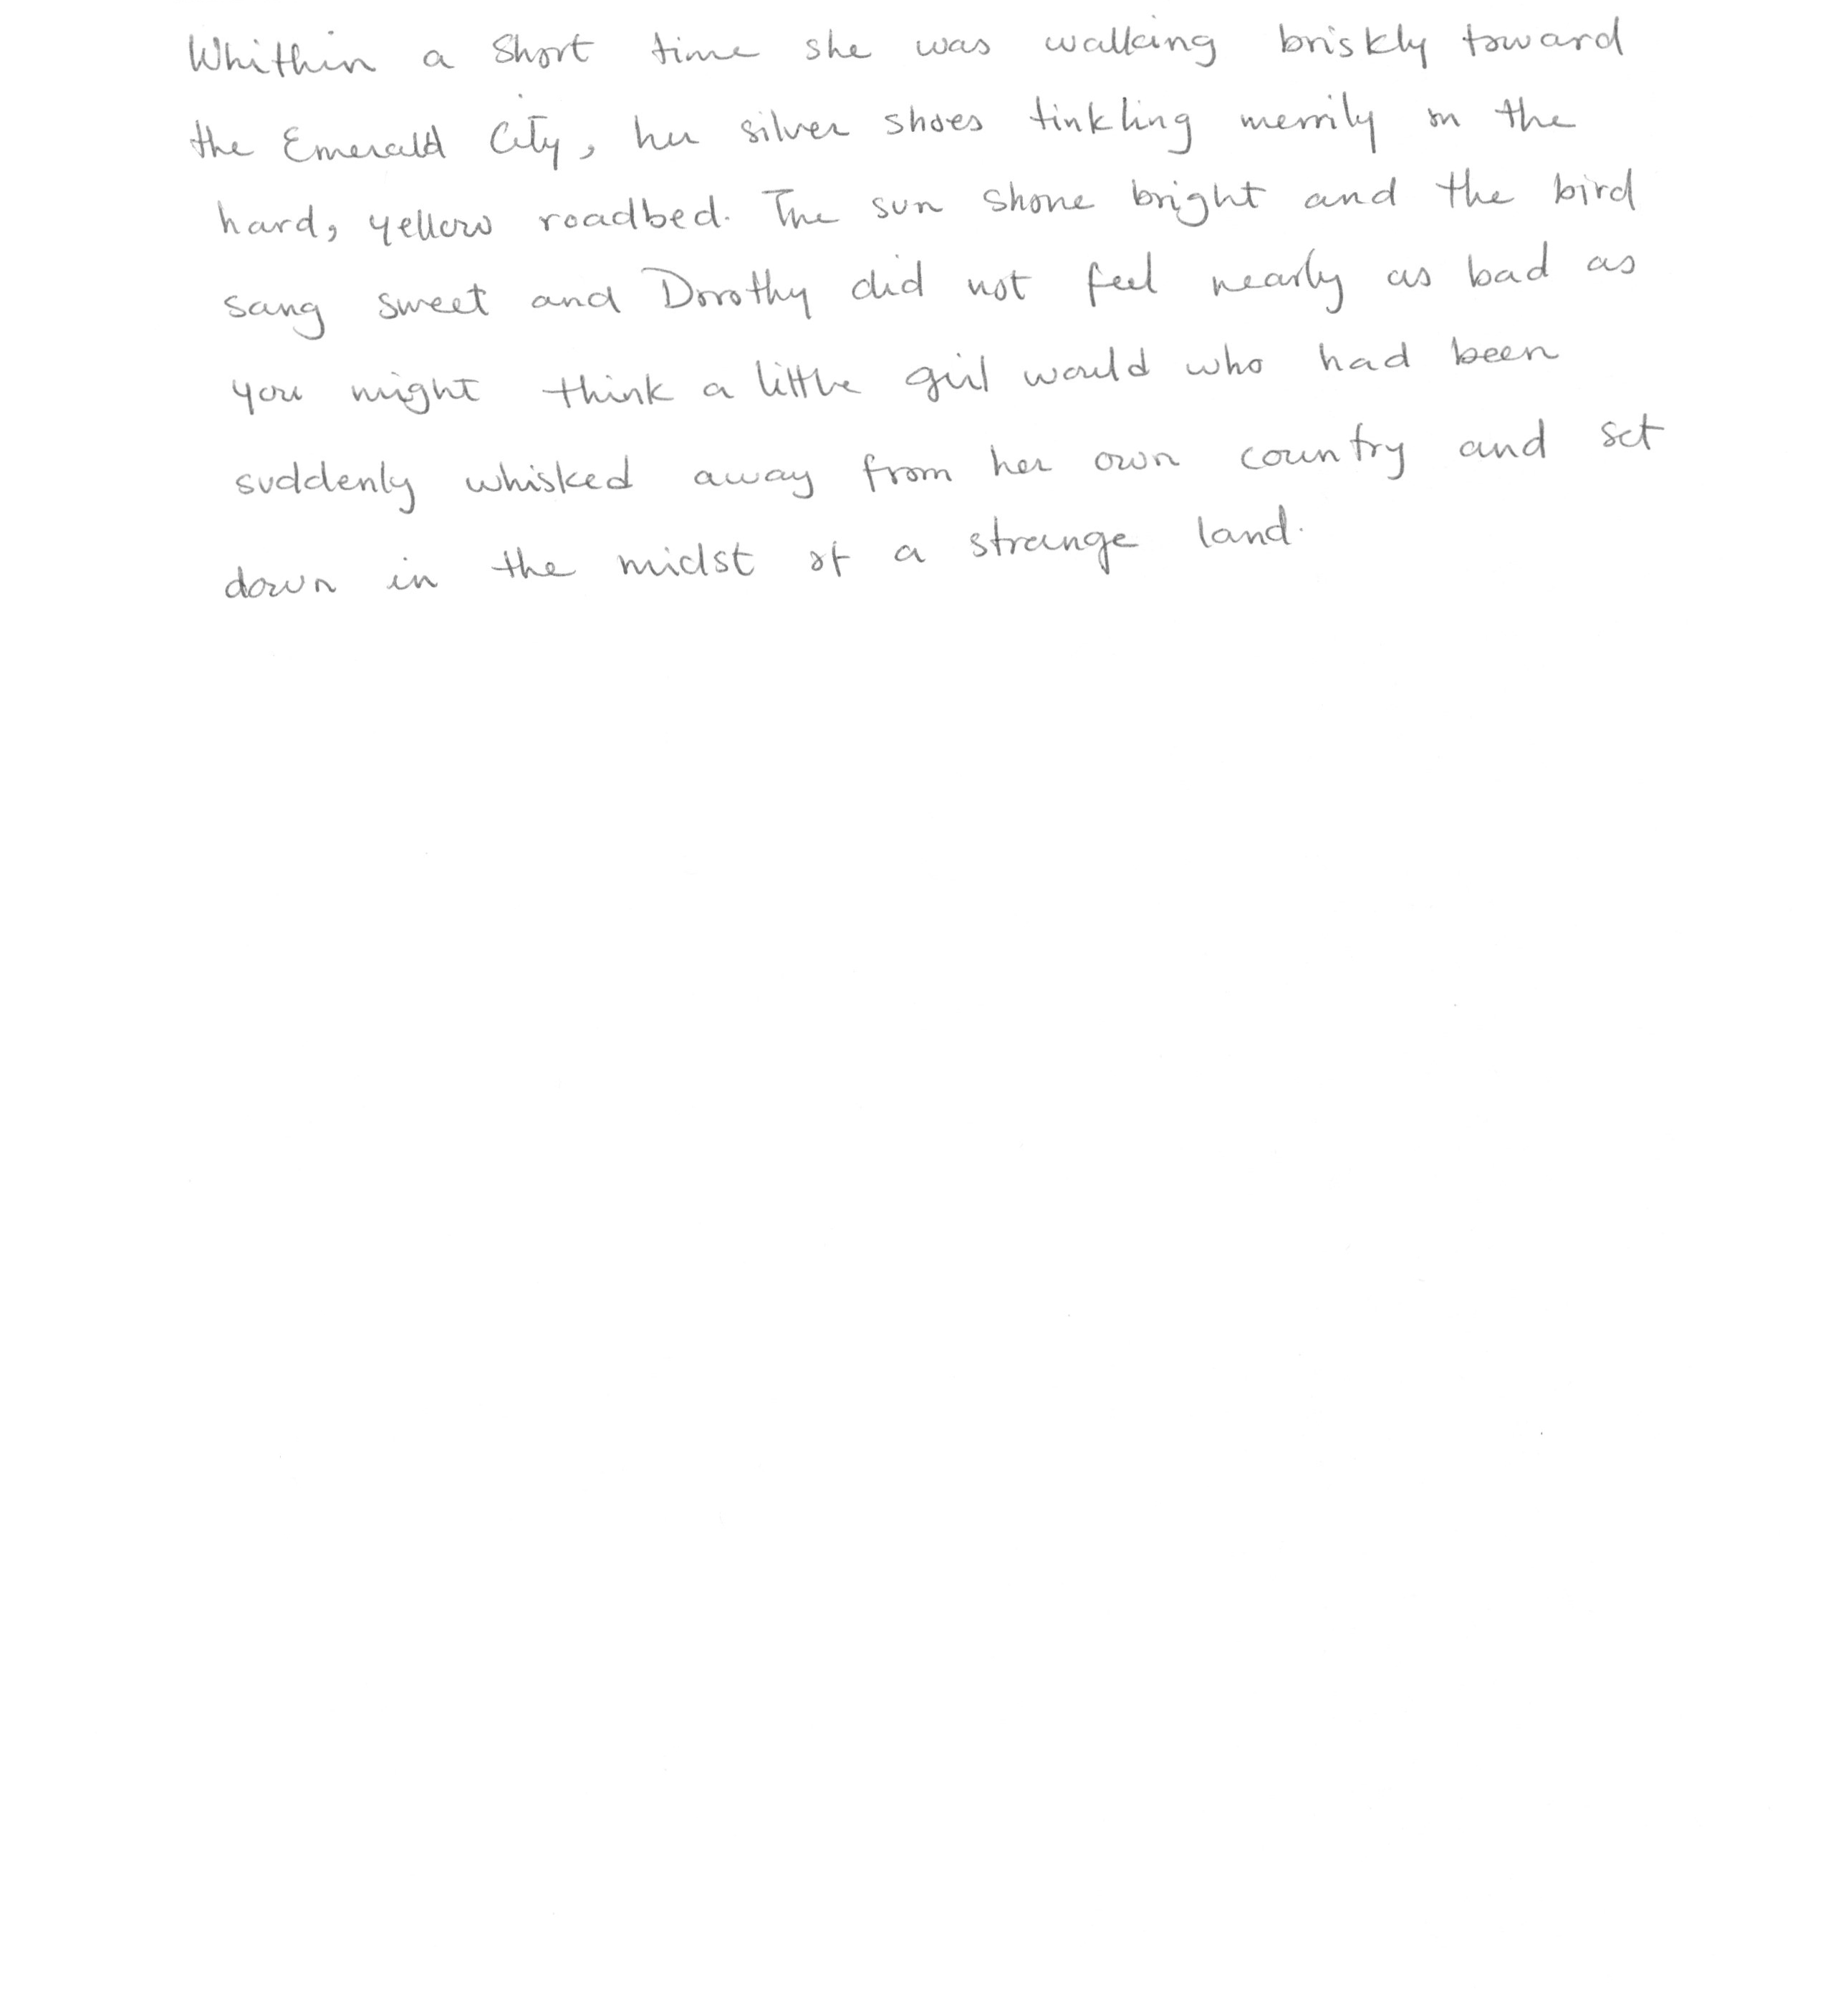 Whithin a short time she was walking briskly toward
the Emerald City, her silver shoes tinkling merrily on the
hard, yellow roadbed. The sun shone bright and the bird
sang sweet and Dorothy did not feel nearly as bad as
you might think a little girl would who had been
suddenly whisked away from her own country and set
down in the midst of a strange land.